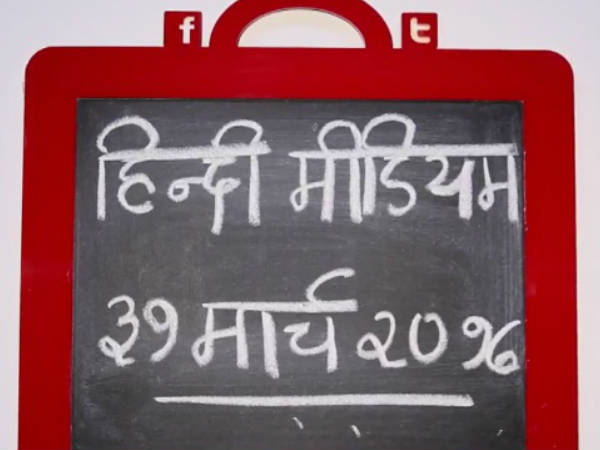 f t
हिन्दी मीडियम
३१ मार्च २०१६